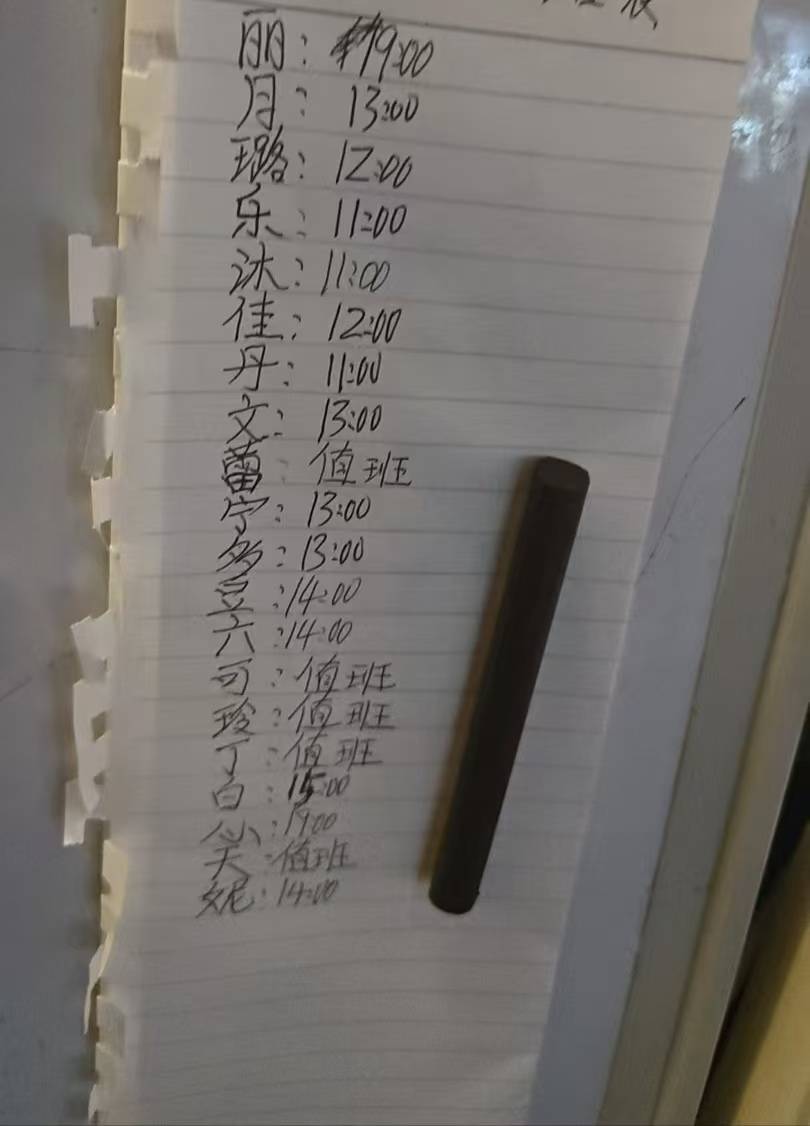 丽：19:00
月：13:00
璐：12:00
乐：11:00
沐：11:00
佳：12:00
丹：11:00
文：13:00
蕾：值班
宁：13:00
多：13:00
豆：14:00
六：14:00
可：值班
玲：值班
丁：值班
白：15:00
心：19:00
天：值班
妮：14:00